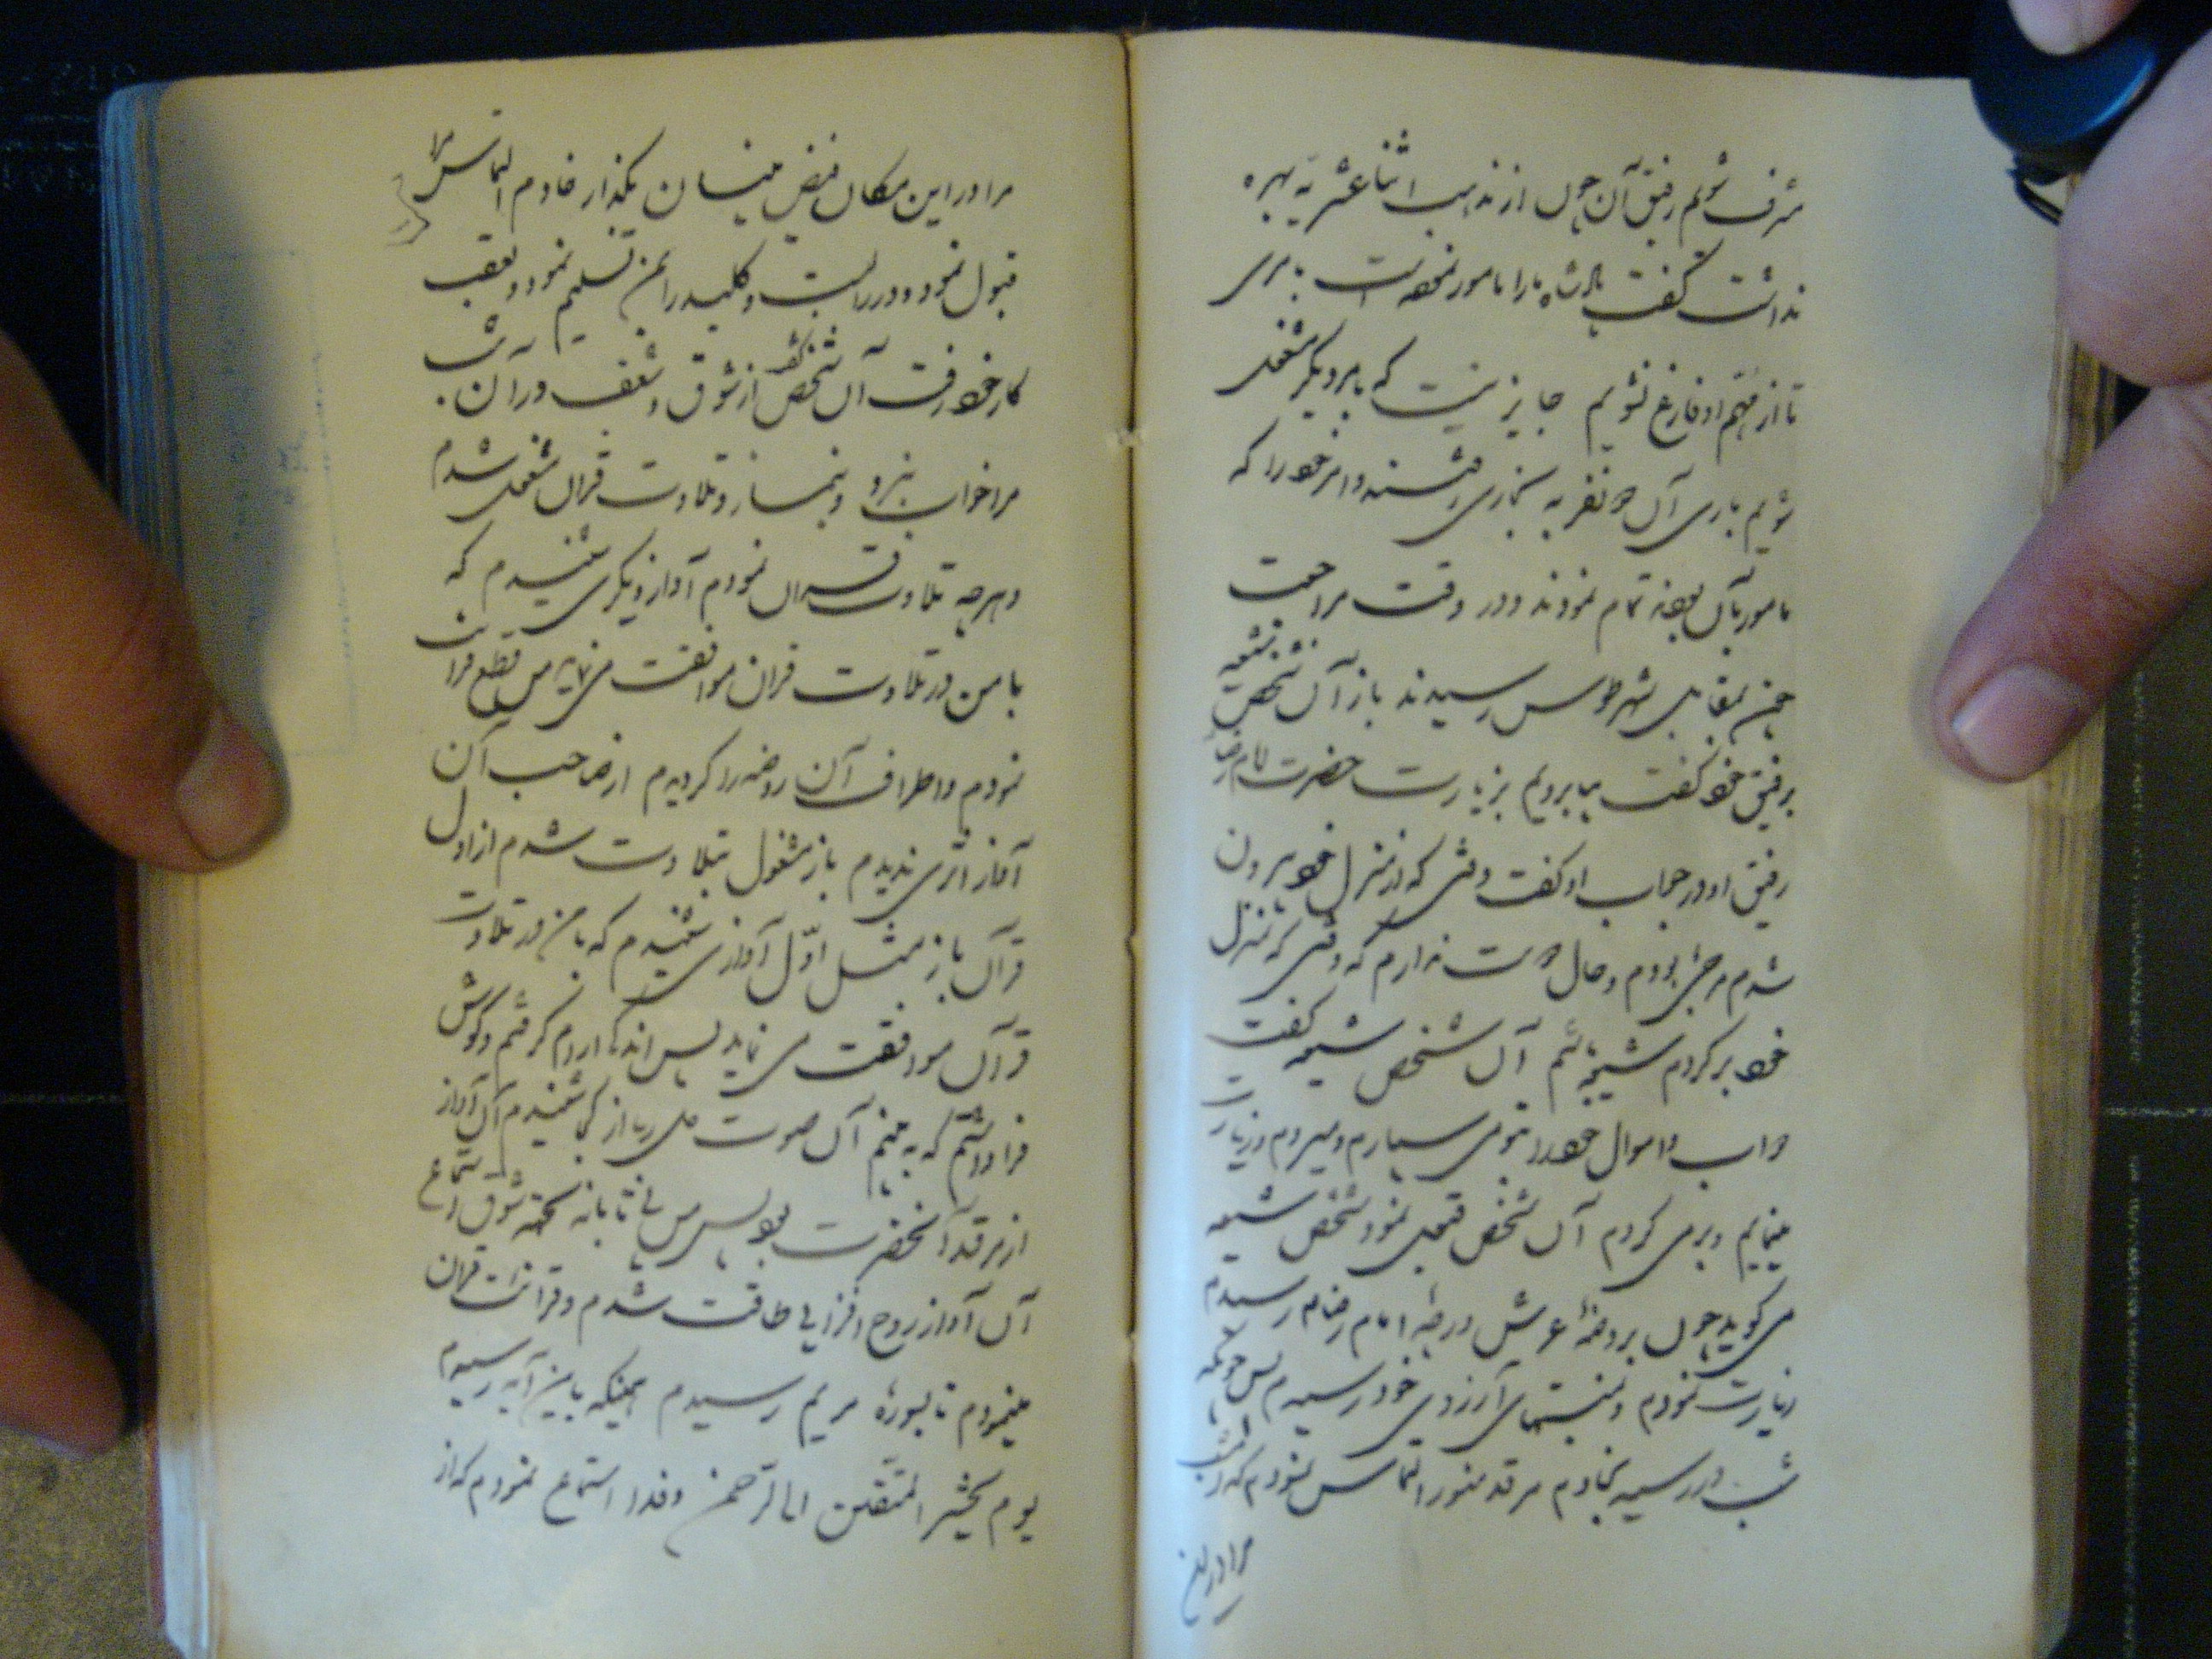 مشرف شویم رفیق آن چون از مذهب اثناعشریه بهره
نداشت گفت پادشاه ما را مامور نموده است بامری
تا از مهم او فارغ نشویم جایز نیست که بامر دیگر مشغول
شویم باری آن دو نفر به بخارا رفتند و امر خود را که
مامور بآن بودند تمام نمودند و در وقت مراجعت
چون بمقابل شهر طوس رسیدند باز آن شخص شیعه
برفیق خود گفت بیا برویم بزیارت حضرت امام رضا
رفیق او در جواب او گفت وقتی که از منزل خود بیرون
شدم مرجئی بودم و حال دوست ندارم که وقتی که بمنزل
خود برگردم شیعه باشم آن شخص شیعه گفت
دواب و اموال خود را بتو می سپارم و میروم و زیارت
مینمایم و برمی گردم آن شخص قبول نمود شخص شیعه
می گوید چون بروضهٔ عرش درجهٔ امام رضا م رسیدم
زیارت نمودم و بمنتهای آرزوی خود رسیدم پس چونکه
شب در رسید بخادم مرقد منور التماس نمودم که امشب
مرا در این
مرا در این مکان فیض بنیان بگذار خادم التماس مرا
قبول نمود و در را بست و کلید را بمن تسلیم نمود و بعقب
کار خود رفت آن شخص گفت از شوق و شعف در آن شب
مرا خواب نبرد و بنماز و تلاوت قرآن مشغول شدم
و هرچه تلاوت قرآن نمودم آواز دیگری شنیدم که
با من در تلاوت قرآن موافقت می نماید من قطع قرآن
نمودم و اطراف آن روضه را گردیدم از صاحب آن
آواز اثری ندیدم باز مشغول بتلاوت شدم از اول
قرآن باز مثل اوّل آوازی شنیدم که با من در تلاوت
قرآن موافقت می نماید پس اندکی آرام گرفتم و گوش
فرا داشتم که به بینم آن صوت می رسد از کجا شنیدم آن آواز
از مرقد آنحضرت بود پس من بی تابانه بجهة شوق استماع
آن آواز روح افزا بی طاقت شدم و قرائت قرآن
مینمودم تا بسورهٔ مریم رسیدم همینکه باین آیه رسیدم
یوم نحشر المتّقین الی الرّحمن وفدا استماع نمودم که از